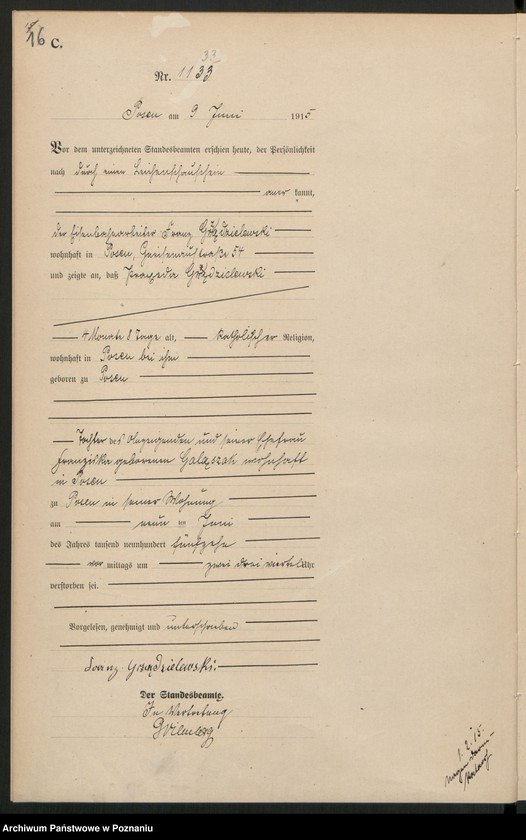 16 C.
33
Nr. 1133
Posen am 9 Juni 1915
Vor dem unterzeichneten Standesbeamten erschien heute, der Persönlichkeit
nach durch einen Leichenschauschein
aner kannt,
der Eisenbahnarbeiter Franz
wohnhaft in Posen, Gneisenaustraße 54
und zeigte an, daß Praxeda
4 Monate 8 Tage alt, katholischer Religion,
wohnhaft in Posen bei ihm
geboren zu Posen
Tochter des Anzeigenden und seiner Ehefrau
Franziska geborenen wohnhaft
in Posen
zu Posen in seiner Wohnung
am neun ten Juni
des Jahres tausend neunhundert fünfzehn
vor mittags um zwei drei viertel Uhr
verstorben sei.
Vorgelesen, genehmigt und unterschrieben
Franz
Der Standesbeamte.
In Vertretung
1.2.15.
Archiwum Państwowe w Poznaniu